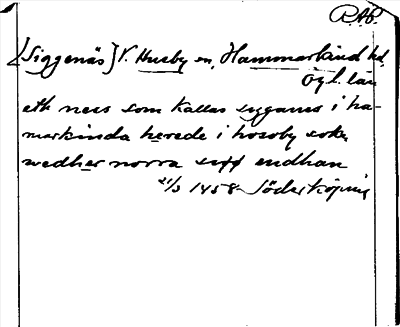 R.A.P.
[Siggenäs] V. Husby sn, Hammarkind hd,
Ög l. län
eth ness som kallas syganes i ha-
markinda herede i hosoby sokn
wedher norra syff endhan
21/3 1458 Söderköping